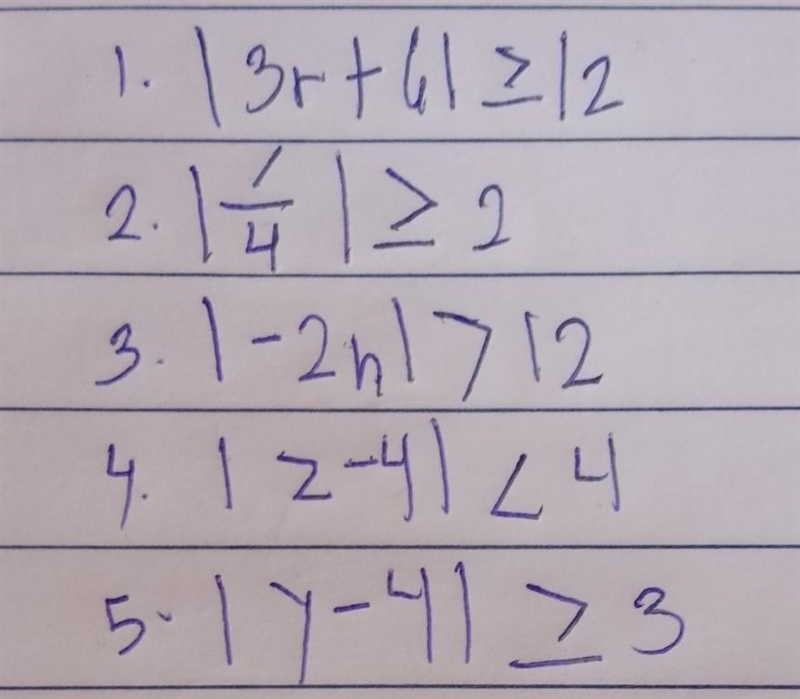 1. |3r+6| ≥ 12
2. |/4| ≥ 2
3. |-2n| > 12
4. |z-4| < 4
5. |y-4| ≥ 3